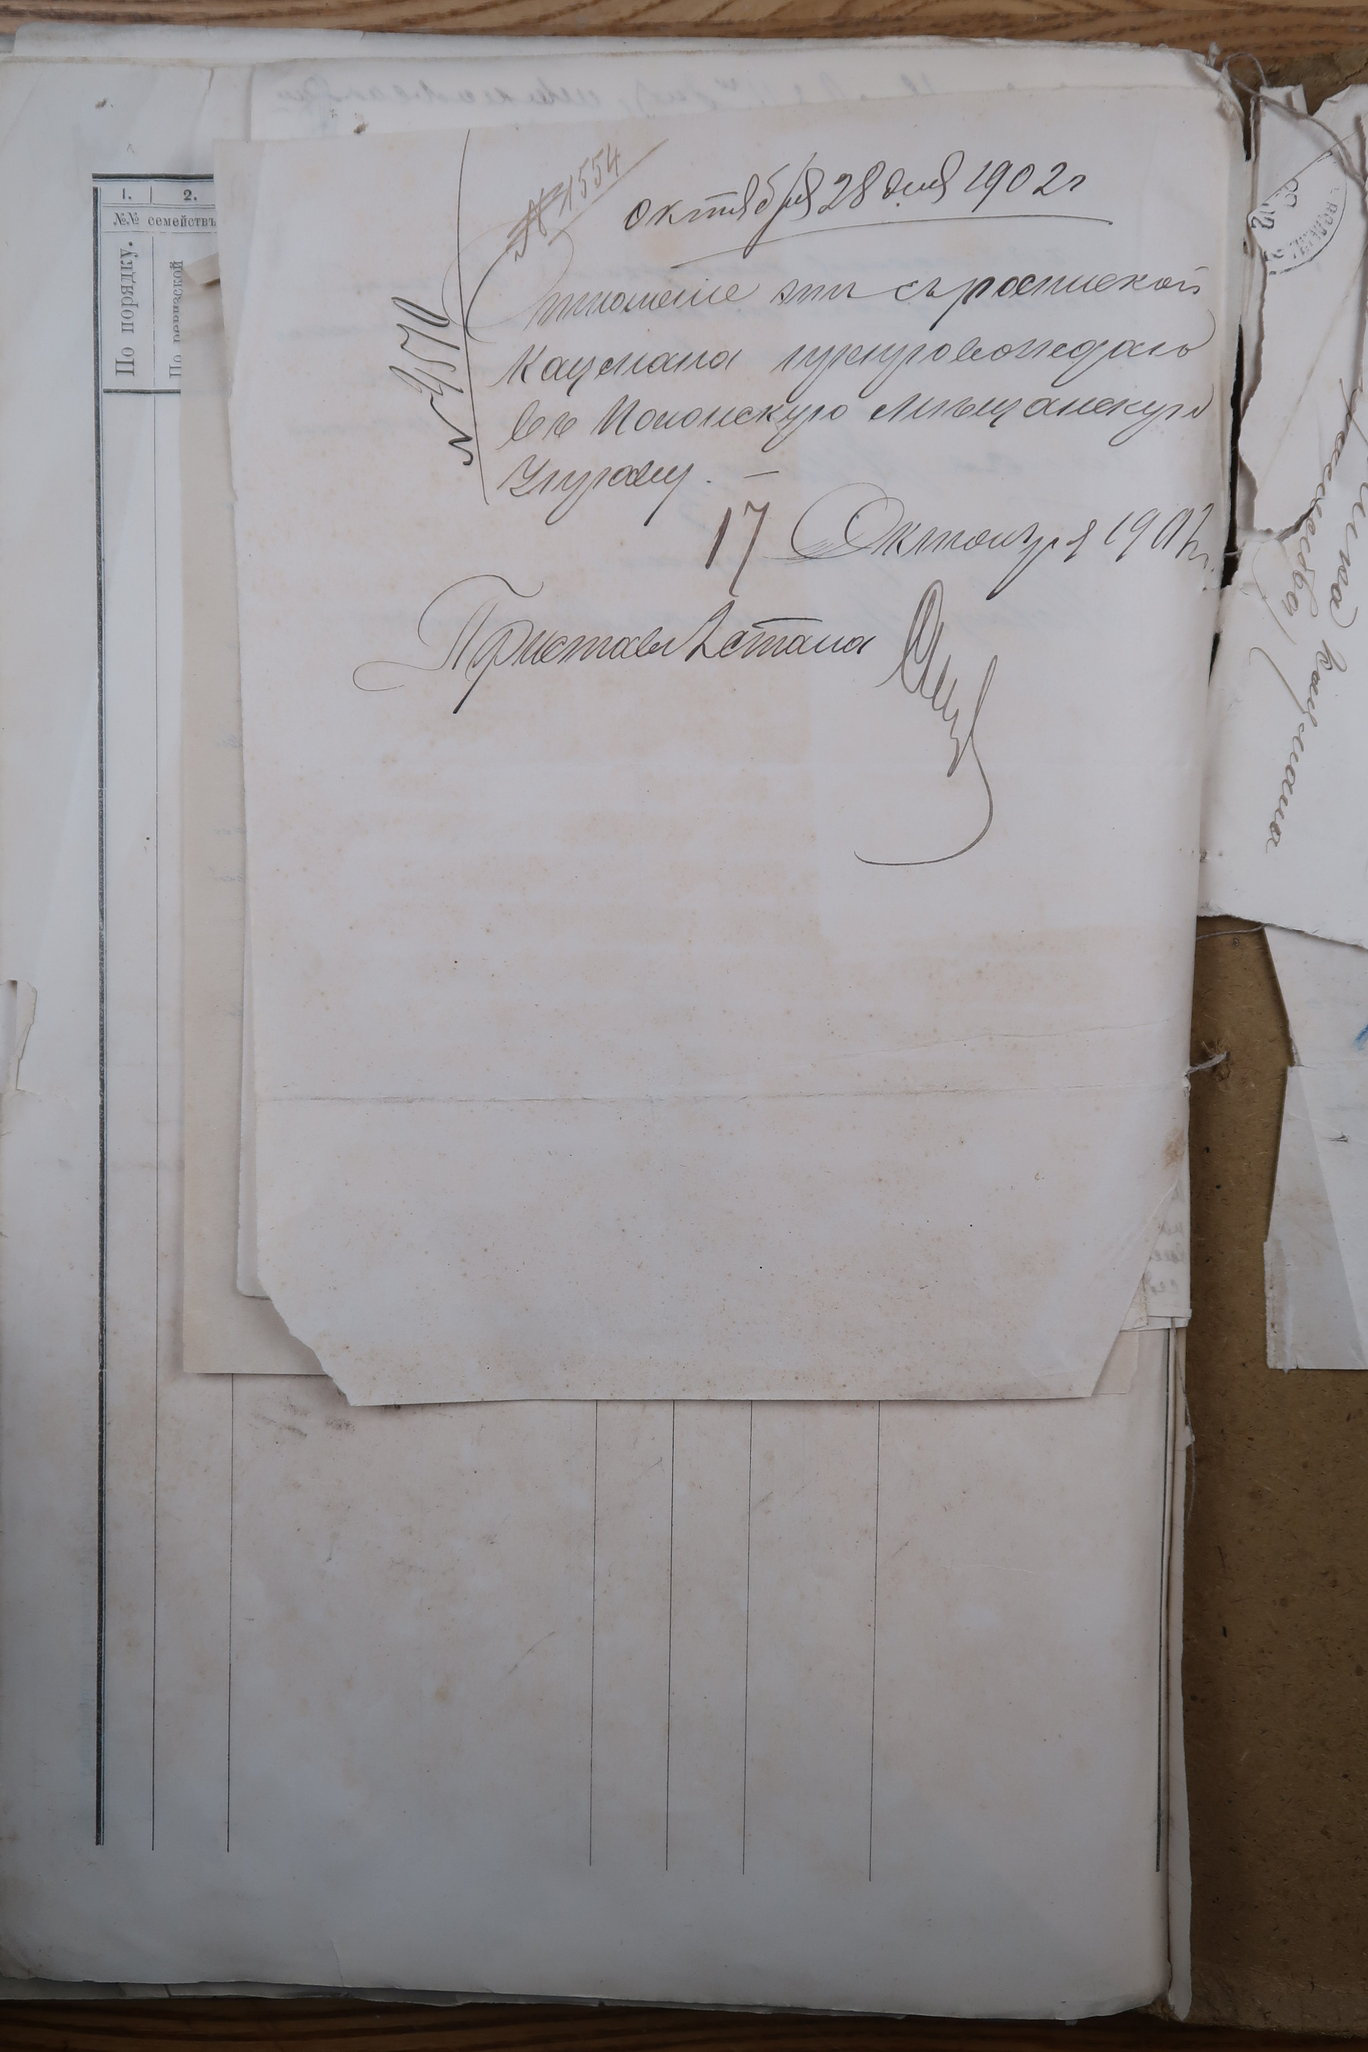 1. 2.
№№ семействъ
По порядку.
По ревизской
№ 1554
Октября 28 дня 1902 г
№ 4570
Отношеніе это съ роспиской
Кацмана препровождаю
въ Мѣщанскую
Управу. —
17 Октября 1902 г.
Приставъ 2 стана
Кацмана